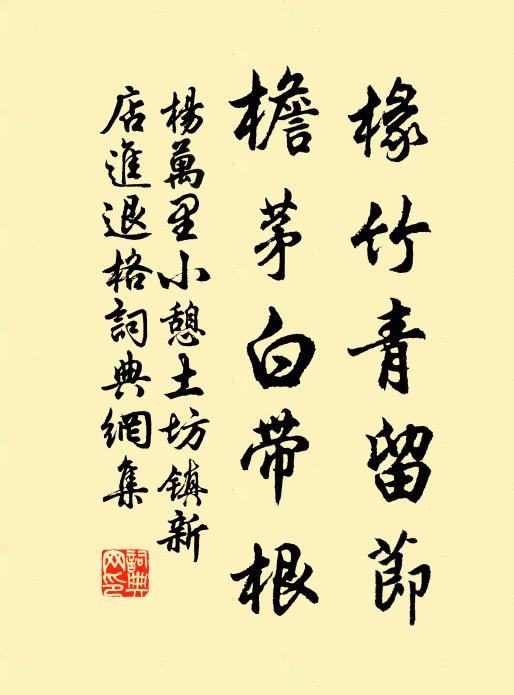 椽竹青留節
檐茅白带根
楊萬里小憩土坊鎮新
店進退格詞典網集
詞典
网印